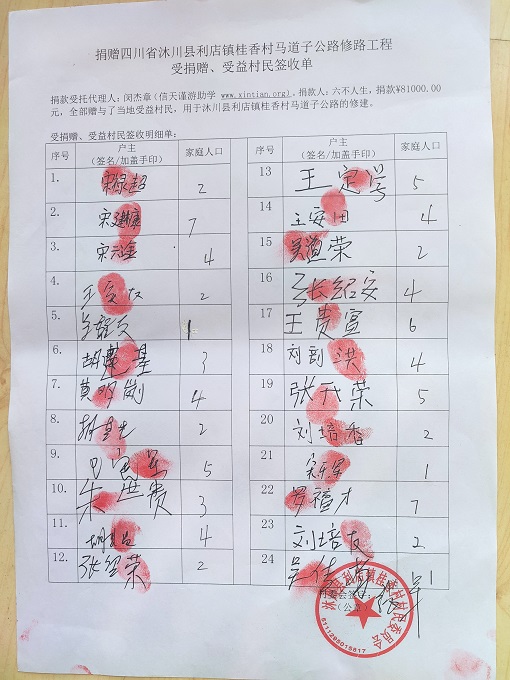 捐赠四川省沐川县利店镇桂香村马道子公路修路工程
受捐赠、受益村民签收单
捐款受托代理人:闵杰章(信天谨游助学 www.xintian.org),捐款人:六不人生,捐款¥81000.00
元,全部赠与了当地受益村民,用于沐川县利店镇桂香村马道子公路的修建。
受捐赠、受益村民签收明细单:
序号 户主 家庭人口
(签名/加盖手印)
1. 宋绿超 2
2. 宋建康 7
3. 宋云金 4
4. 2
5. 1
6. 胡 基 3
7. 黄明 4
8. 胡 2
9. 5
10. 朱世贵 3
11. 胡 4
12. 张绍荣 2
序号 户主 家庭人口
(签名/加盖手印)
13 王定号 5
14 王安田 4
15 吴道荣 2
16 张绍安 4
17 王贵宣 6
18 刘 洪 4
19 张开荣 5
20 刘培香 2
21 宋乐军 1
22 罗福才 7
23 刘培友 2
24 吴 1
村委会签章:
(公)
沐川县利店镇桂香村村民委员会